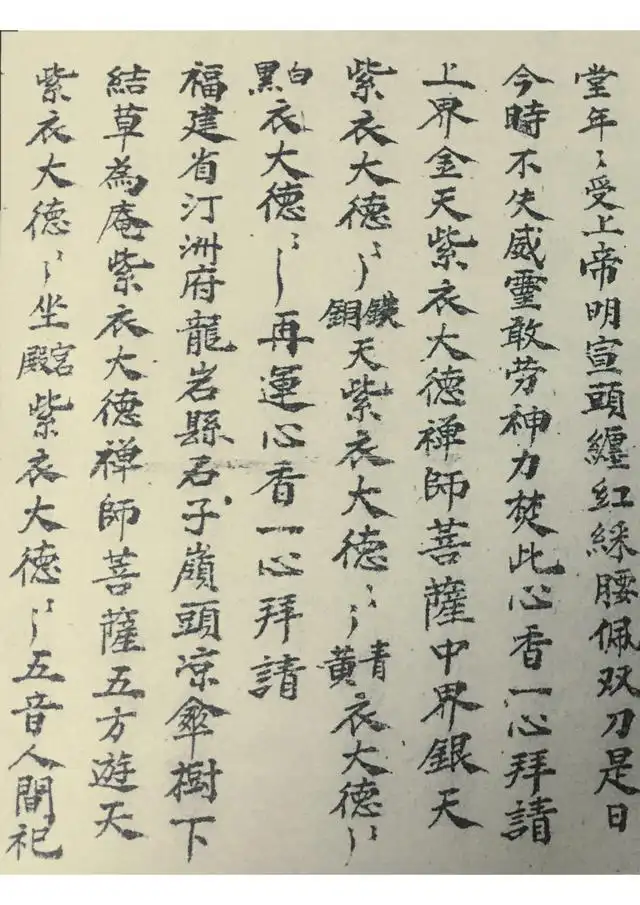 堂年〻受上帝明宣頭纏紅綵腰佩双刀是日
今時不失威靈敢劳神力焚此心香一心拜請
上界金天紫衣大德禅師菩薩中界銀天
紫衣大德〻〻鐵銅天紫衣大德〻〻青黄衣大德〻〻
白黑衣大德〻〻再運心香一心拜請
福建省汀洲府龍岩縣君子嶺頭凉傘樹下
結草為庵紫衣大德禅師菩薩五方遊天
紫衣大德〻〻坐宮殿紫衣大德〻〻五音人間祀